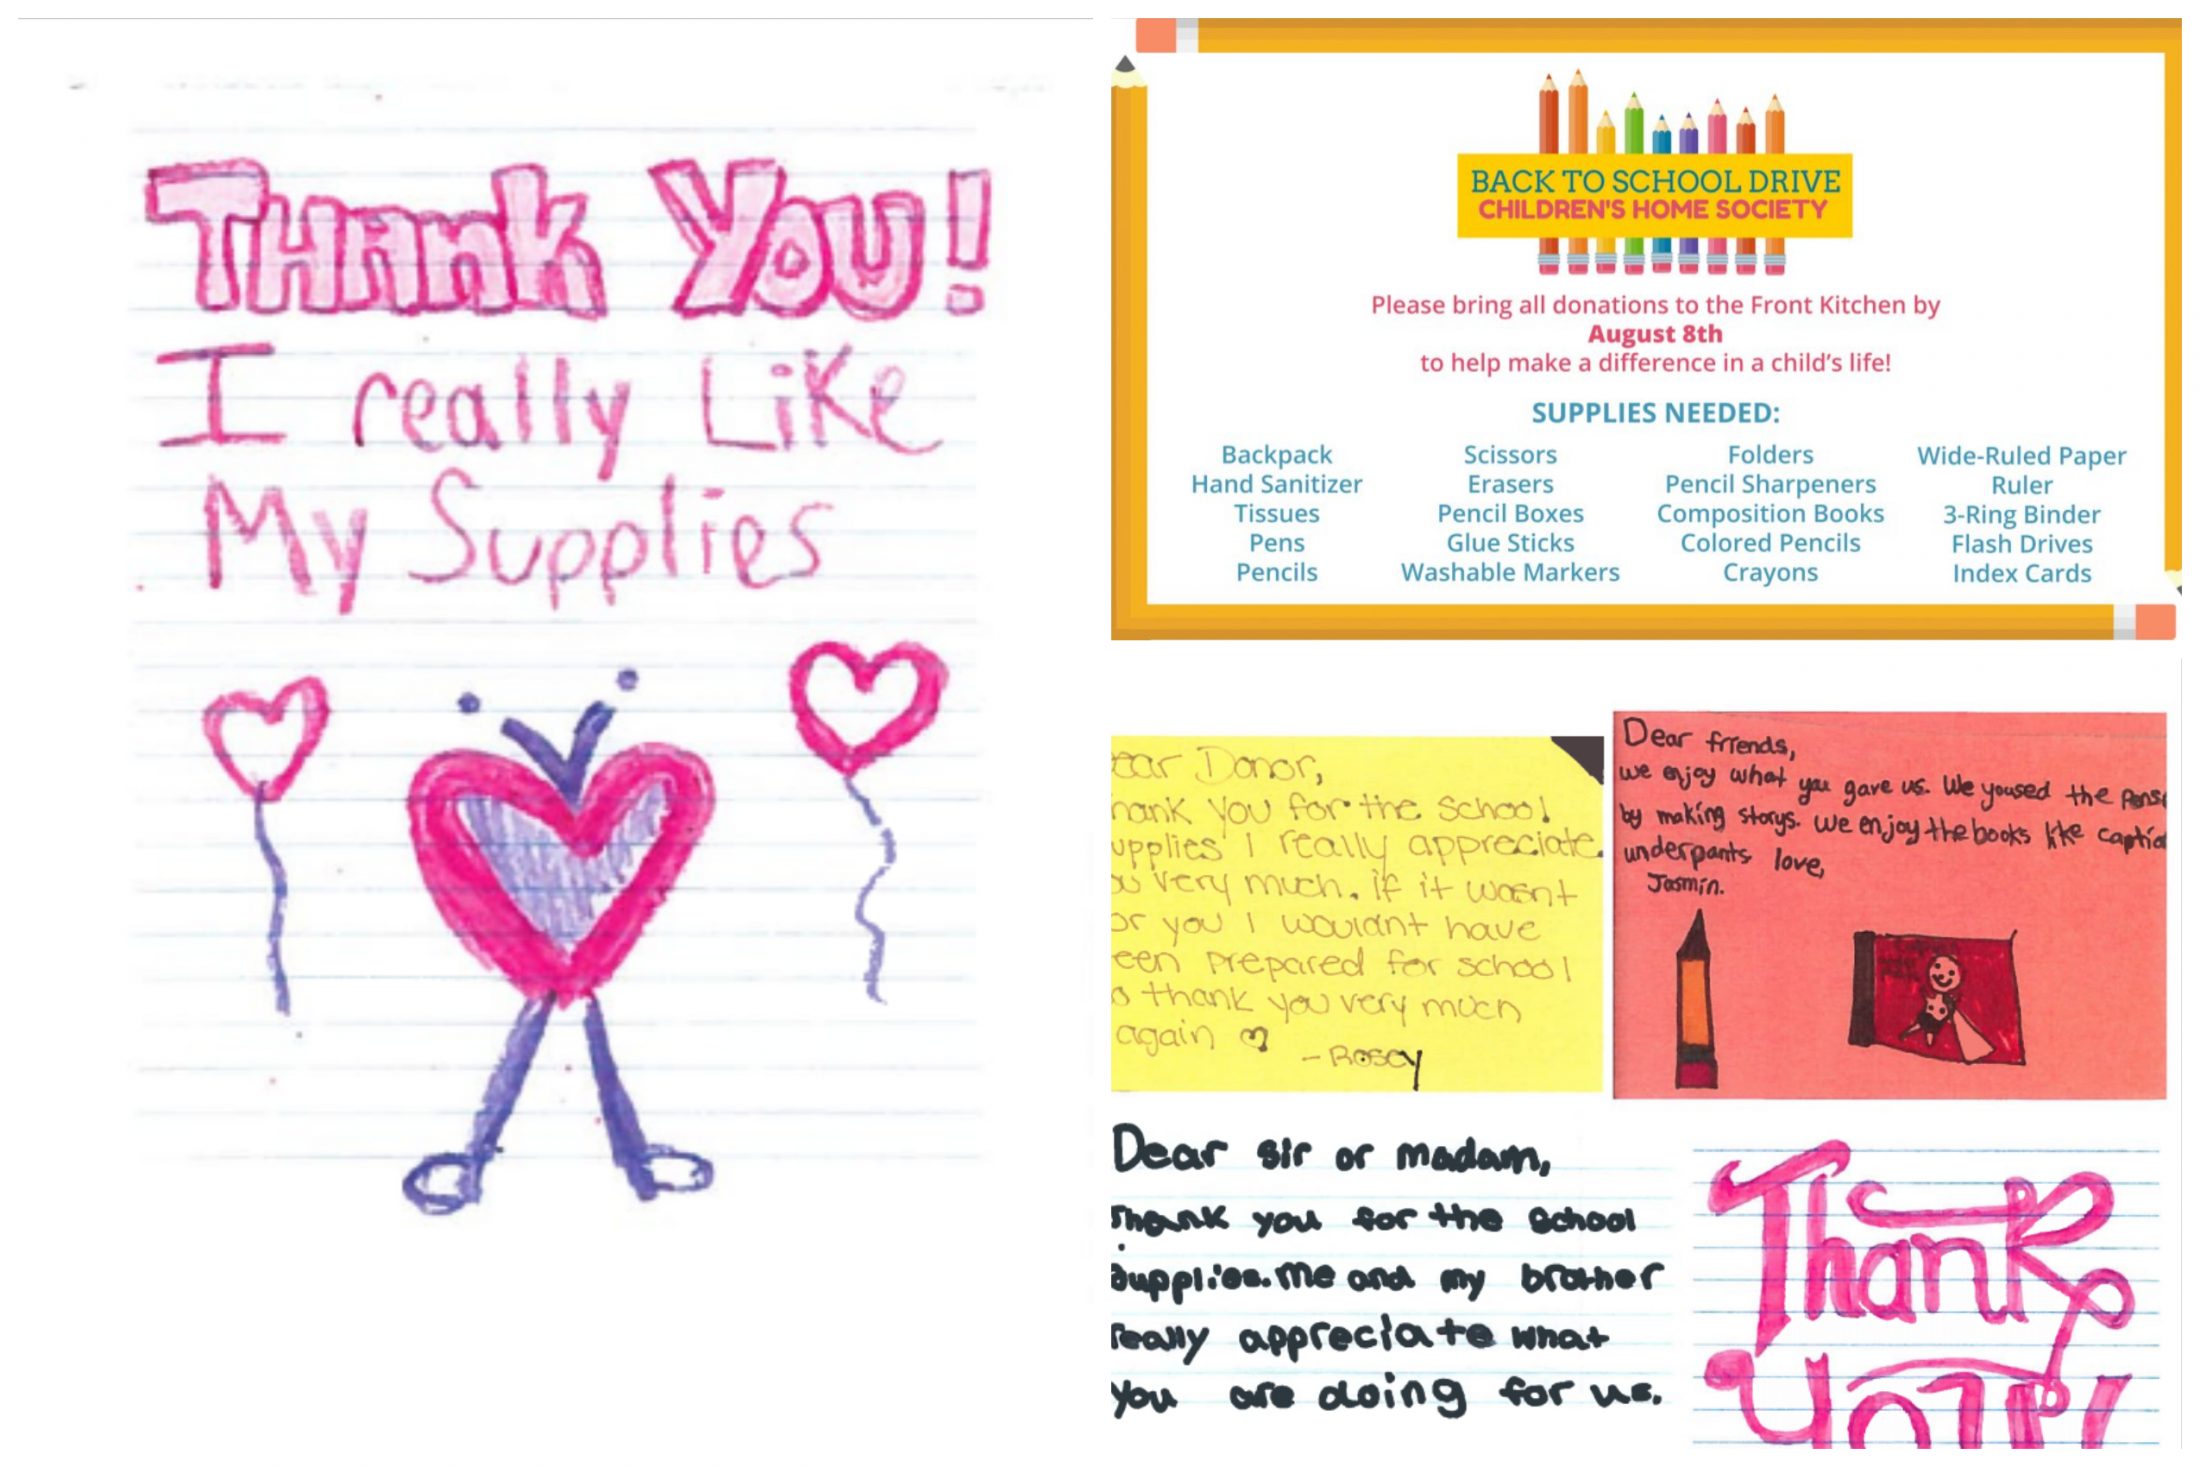 Thank You!
I really Like
My Supplies
BACK TO SCHOOL DRIVE
CHILDREN'S HOME SOCIETY
Please bring all donations to the Front Kitchen by
August 8th
to help make a difference in a child's life!
SUPPLIES NEEDED:
Backpack
Hand Sanitizer
Tissues
Pens
Pencils
Scissors
Erasers
Pencil Boxes
Glue Sticks
Washable Markers
Folders
Pencil Sharpeners
Composition Books
Colored Pencils
Crayons
Wide-Ruled Paper
Ruler
3-Ring Binder
Flash Drives
Index Cards
ear Donor,
hank you for the school
upplies I really appreciate
very much. if it wasnt
or you I wouldnt have
een prepared for school
o thank you very much
again
- Rosey
Dear friends,
we enjoy what you gave us. We youzed the pens
by making storys. we enjoy the books like captia
underpants love,
Jasmin.
Dear sir or madam,
Thank you for the school
supplies. me and my brother
really appreciate what
you are doing for us.
Thank
You!